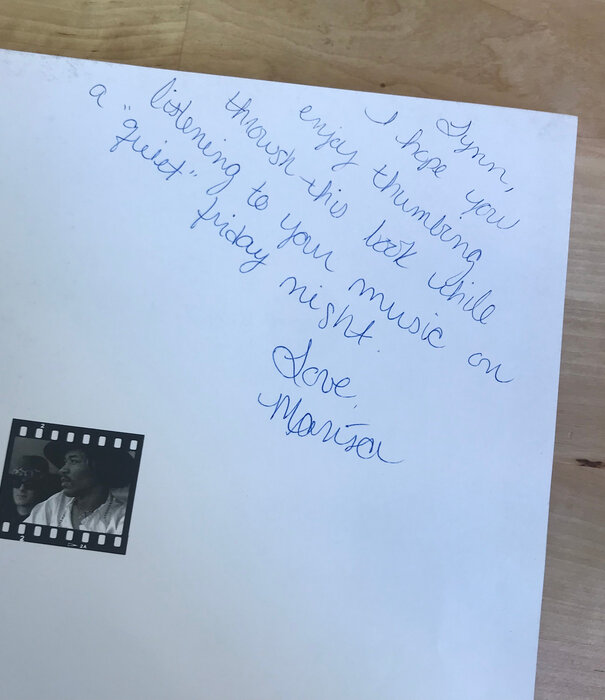 Lynn,
I hope you
enjoy thumbing
through this book while
listening to your music on
a "quiet" friday night.
Love,
Marisa
2
2
2A